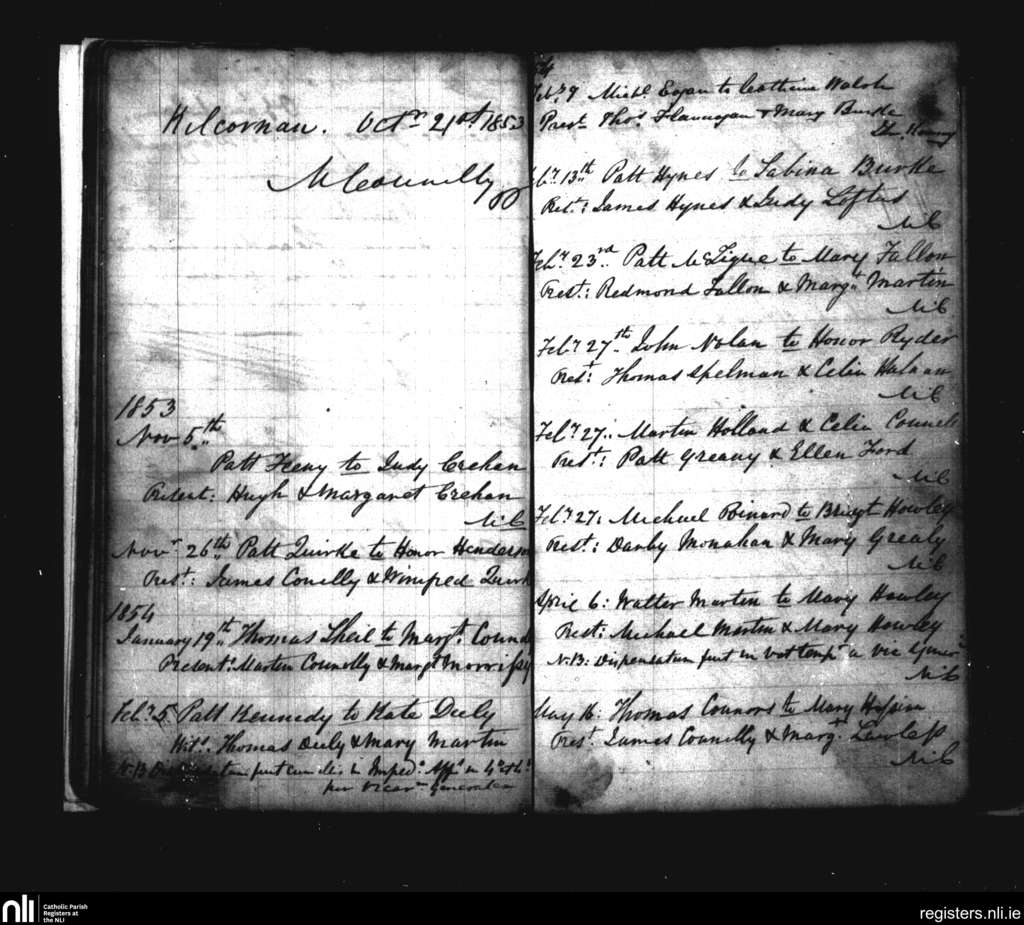 Kilcornan. Octr 21st 1853
M Connolly
1853
Nov 5th
Patt Feeny to Judy Crehan
Present: Hugh & Margaret Crehan
M.C
Novr 26th Patt Quirke to Honor Henderson
Prest: James Conelly & Winifred Quirk
1854
January 19th Thomas Sheil to Margt.
Present: Martin Connolly & Margt Morrissy
Feby 5 Patt Kennedy to Kate Deely
Wits. Thomas Deely & Mary Martin
N.B in Imped. in 4
per Vicar Generalem
Feby 9 Michl Egan to Catherine Walsh
Prest Thos Flannagan & Mary Burke
Feby 13th Patt Hynes to Sabina Burke
Prest: James Hynes & Judy Loftus
M.C
Feby 23rd Patt McTigue to Mary Fallon
Prest: Redmond Fallon & Margt Martin
M.C
Feby 27th John Nolan to Honor Ryder
Prest: Thomas Spelman & Celia
M.C
Feby 27.. Martin Holland & Celia
Prest: Patt Greany & Ellen Ford
M.C
Feby 27: Michael to Bridgt Howley
Prest: Darby Monahan & Mary Grealy
M.C
April 6: Walter Martin to Mary Howley
Prest: Michael Martin & Mary Howley
N.B: Dispensatum fuit in a Vic
M.C
May 16: Thomas Connors to Mary
Prest. James Connilly & Margt. Lawless
M.C
nli
Catholic Parish
Registers at
the NLI
registers.nli.ie